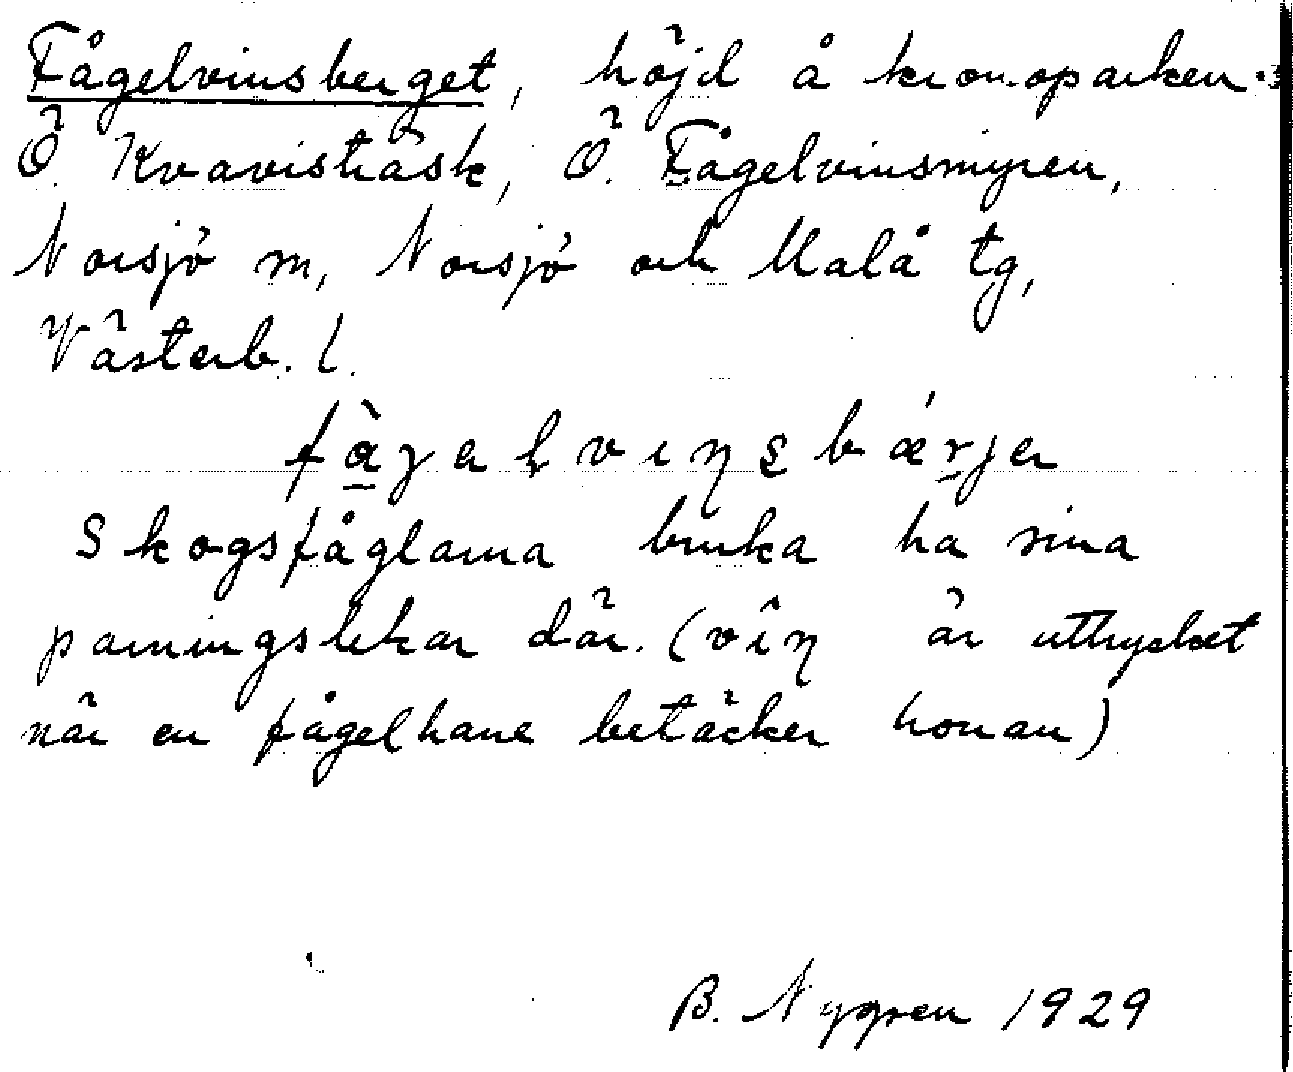 Fågelvinsberget, höjd å kronoparken
Ö. Kvavisträsk, Ö. Fågelvinsmyren,
Norsjö m, Norsjö och Malå tg,
Västerb. l.
fὰgelvinsbǽrjer
Skogsfåglarna bruka ha sina
parningslekar där. (vîn är uttrycket
när en fågelhane betäcker honan)
B. Nygren 1929